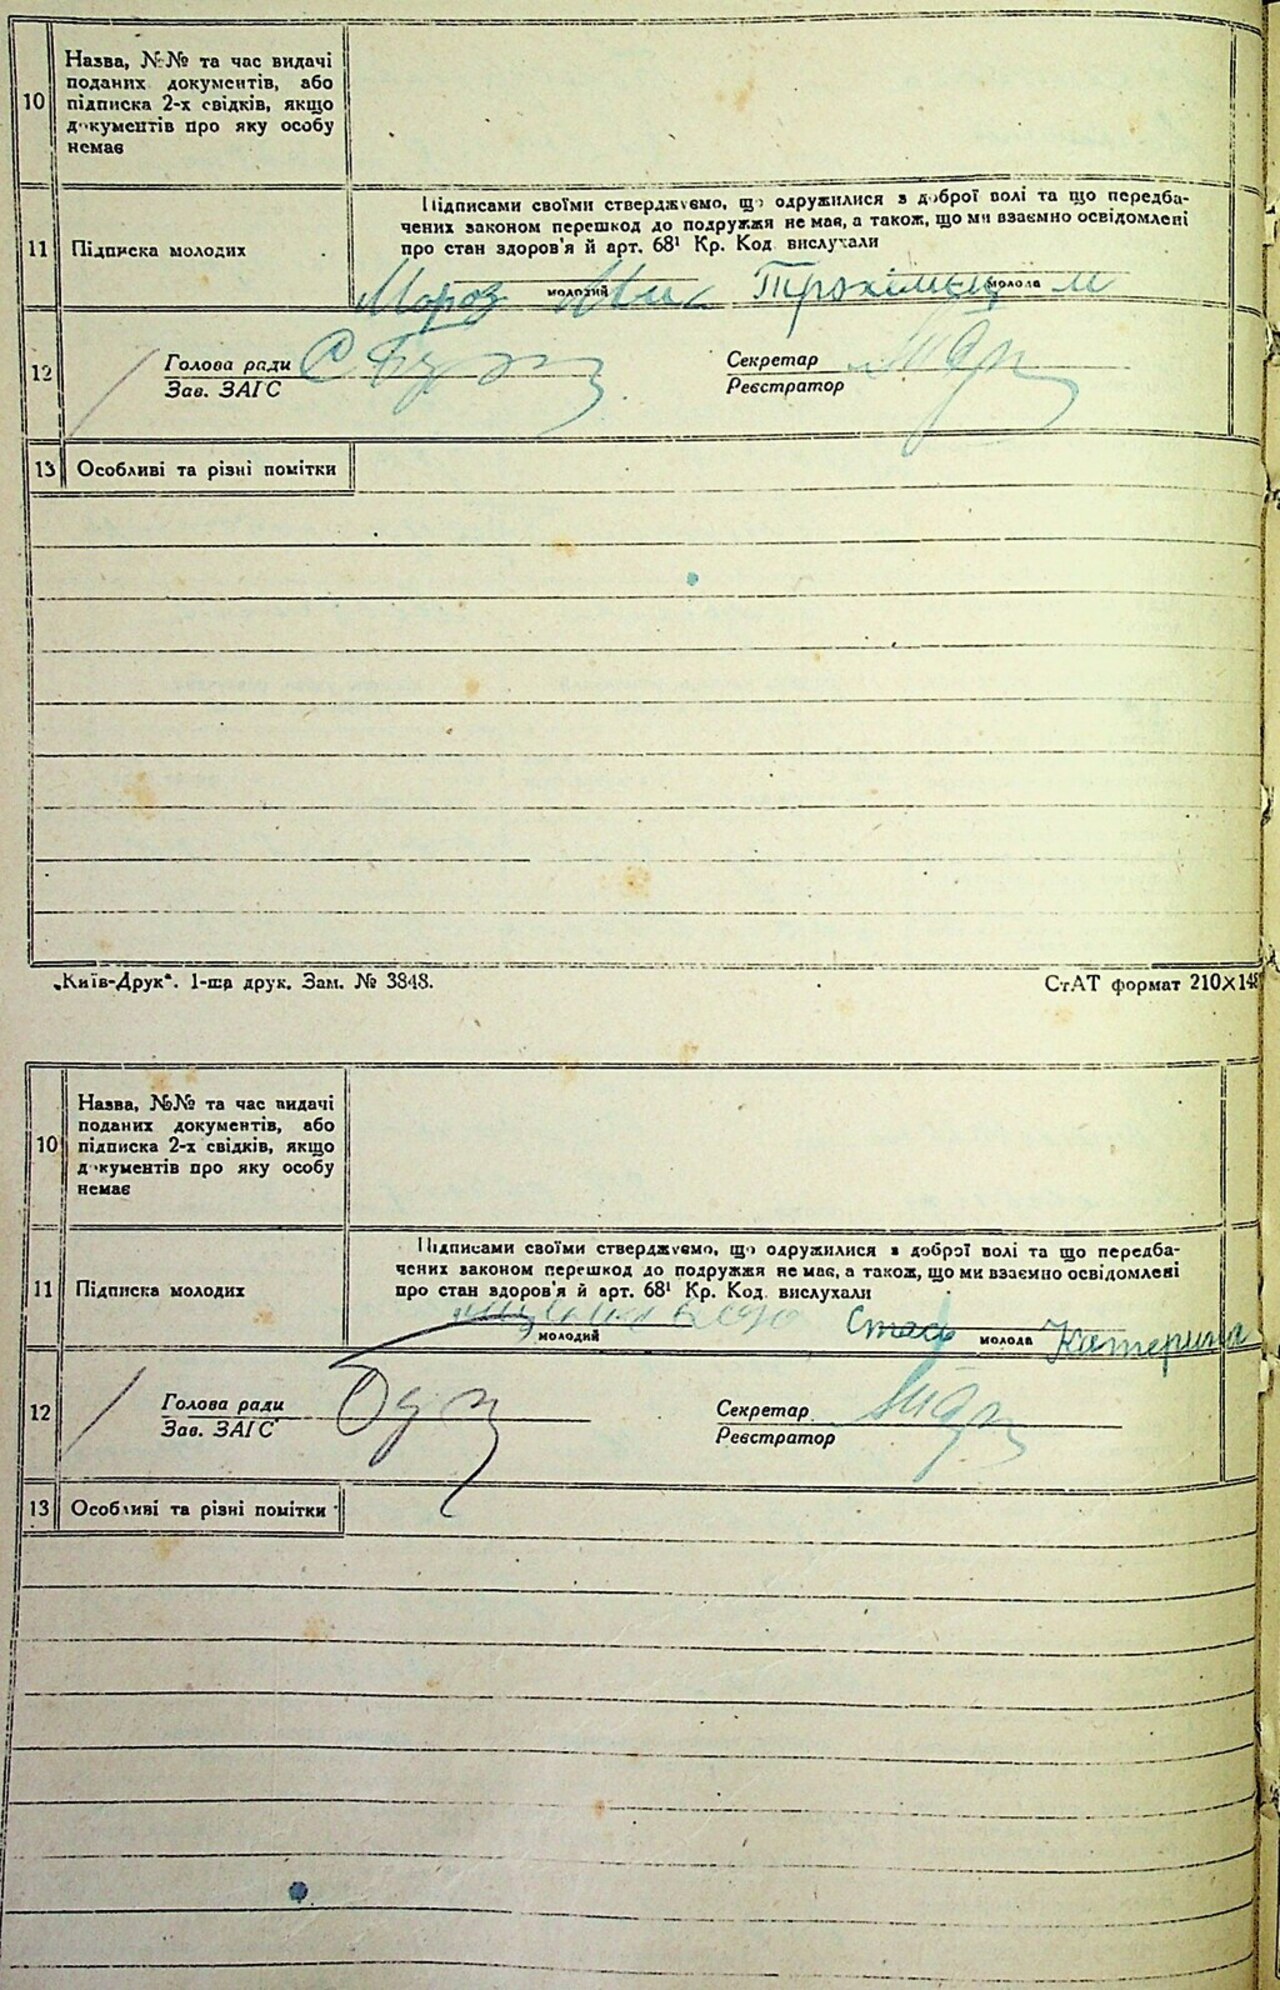 10
Назва, №№ та час видачі
поданих документів, або
підписка 2-х свідків, якщо
документів про яку особу
немає
11
Підписка молодих
Підписами своїми стверджуємо, що одружилися з доброї волі та що передба-
чених законом перешкод до подружжя не має, а також, що ми взаємно освідомлені
про стан здоров'я й арт. 68¹ Кр. Код. вислухали
Мороз Трохімец М
молодий молода
12
Голова ради
Зав. ЗАГС
Секретар
Реєстратор
13 Особливі та різні помітки
„Київ-Друк“. 1-ша друк. Зам. № 3848.
СтАТ формат 210×148
10
Назва, №№ та час видачі
поданих документів, або
підписка 2-х свідків, якщо
документів про яку особу
немає
11
Підписка молодих
Підписами своїми стверджуємо, що одружилися з доброї волі та що передба-
чених законом перешкод до подружжя не має, а також, що ми взаємно освідомлені
про стан здоров'я й арт. 68¹ Кр. Код. вислухали
Катерина
молодий молода
12
Голова ради
Зав. ЗАГС
Секретар
Реєстратор
13 Особливі та різні помітки